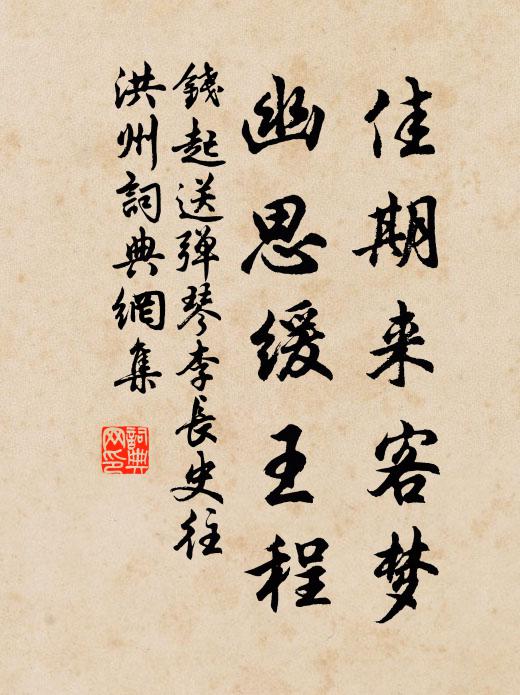 佳期来客梦
幽思缓王程
錢起送弹琴李長史往
洪州詞典網集
詞典
网印